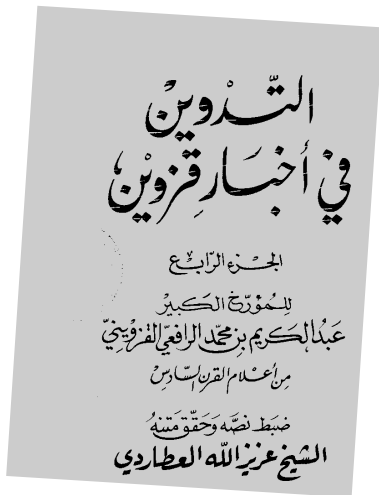 التّدْوين
في أخبَار قزوين
الجزء الرّابع
للمُؤرّخ الكبير
عَبدُ الكريم بن محمّد الرافعي القزوينيّ
مِن أعلام القرن السّادس
ضبَط نصّه وَحَقّق مَتنهُ
الشيخ عزيز الله العطاردي